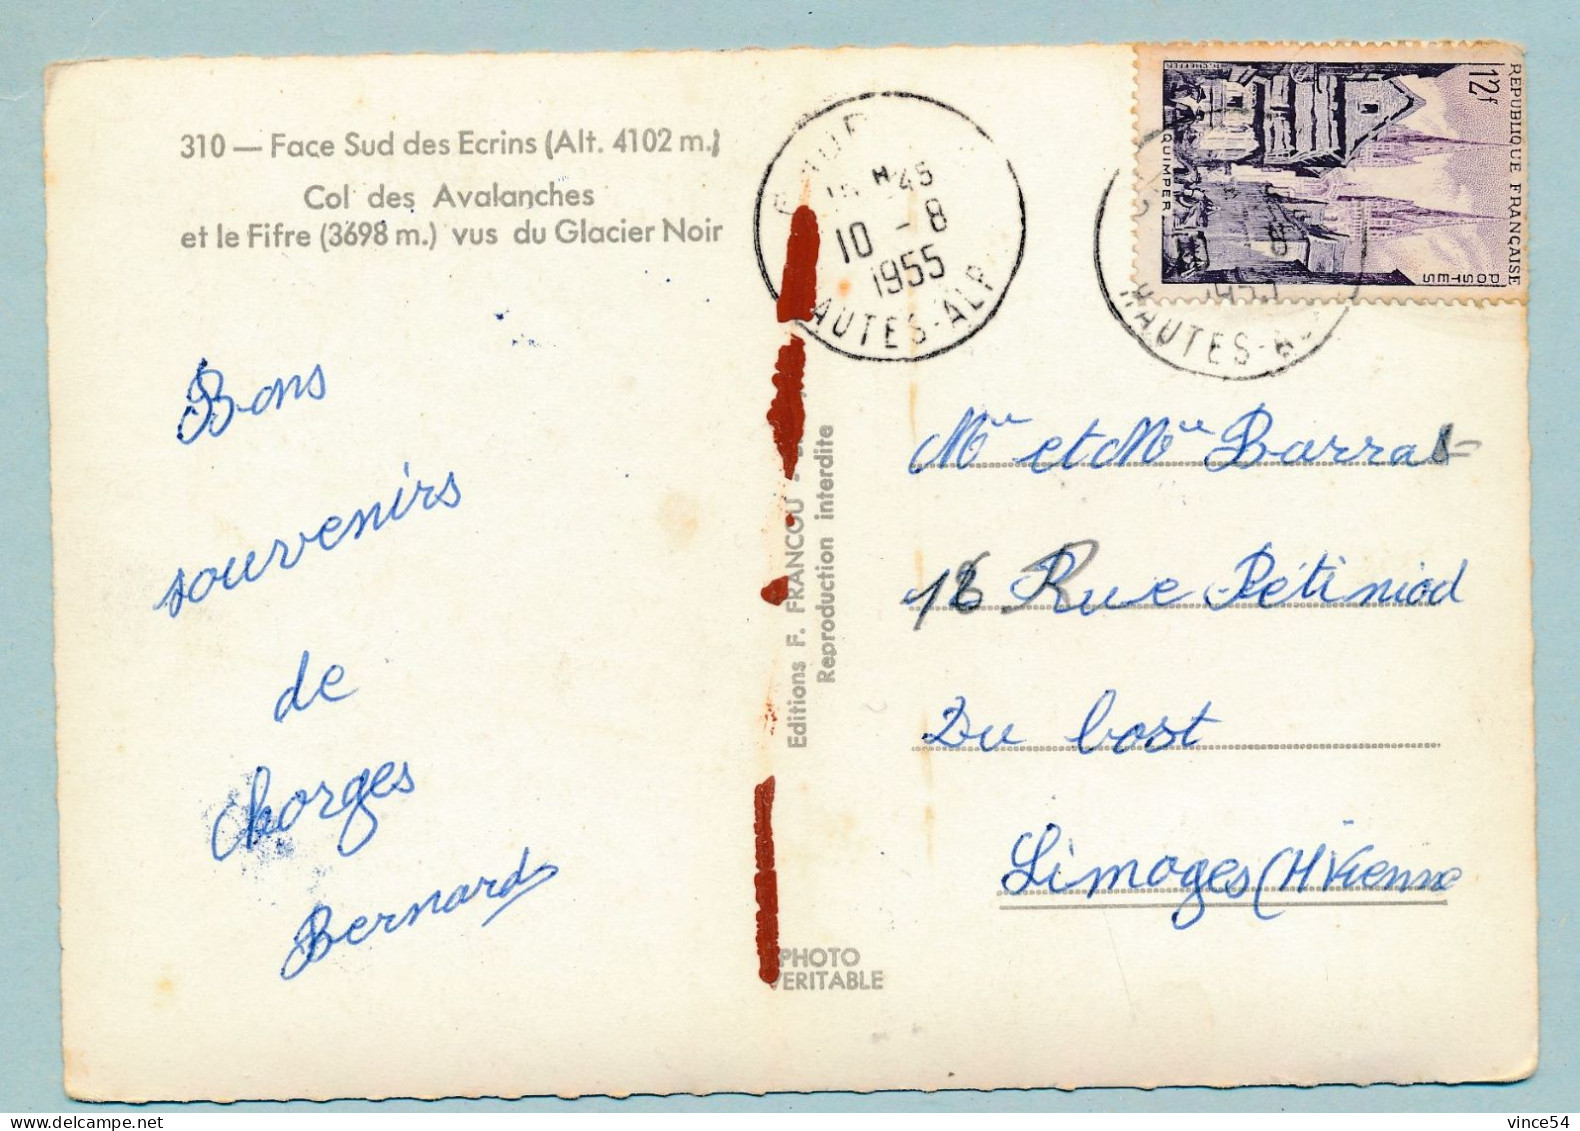 310 — Face Sud des Ecrins (Alt. 4102 m.)
Col des Avalanches
et le Fifre (3698 m.) vus du Glacier Noir
Bons
souvenirs
de
Chorges
Bernard
Editions F. FRANCOU -
Reproduction interdite
PHOTO
VERITABLE
45
10 - 8
1955
HAUTES-ALP
REPUBLIQUE FRANÇAISE
12f
POSTES
QUIMPER
8
1955
HAUTES-A
Mlle et Mlle Barral
16 Rue Pétiniod
Du bost
Limoges (H Vienne
vince54